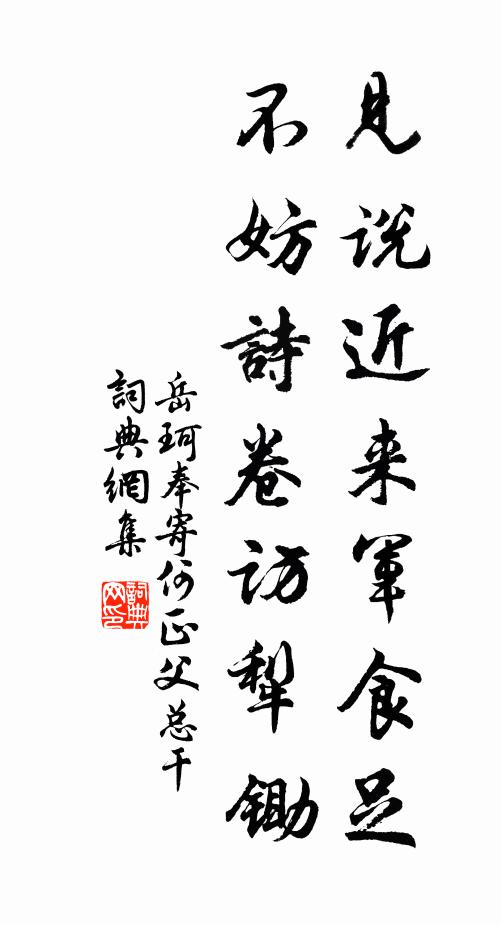 見説近来軍食足
不妨詩卷访犁鋤
岳珂奉寄何正父总干
詞典網集
詞典网印